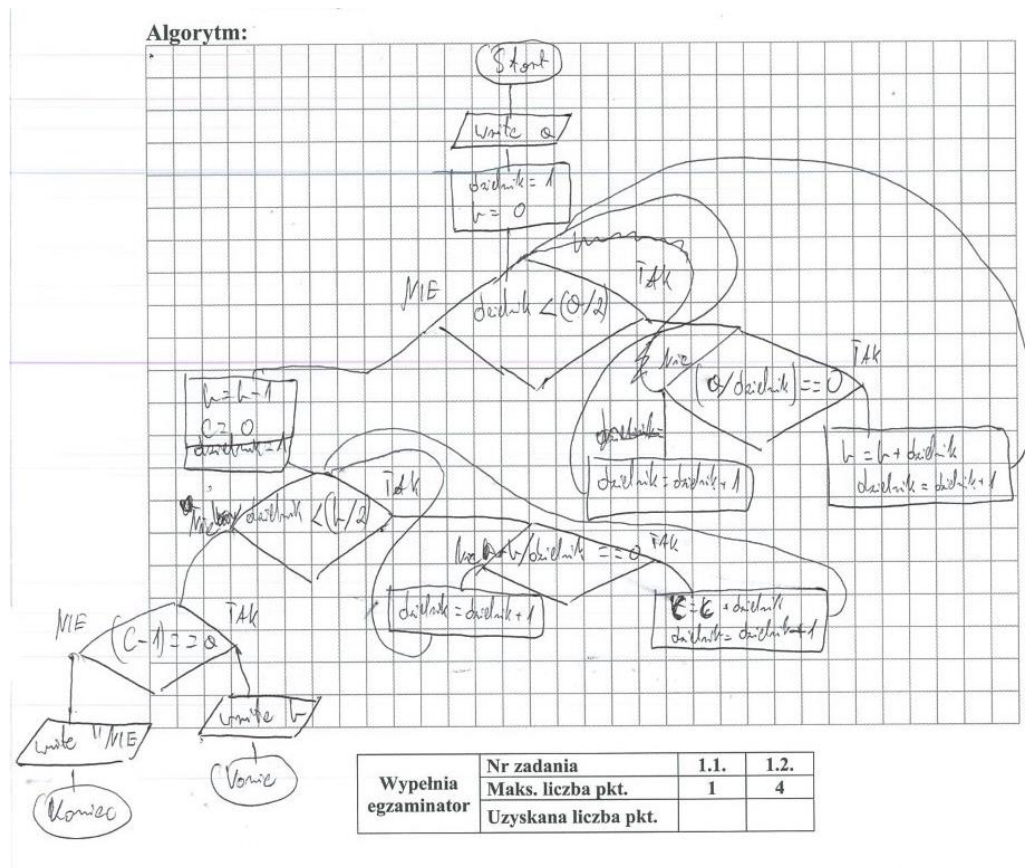 Algorytm:
Start
write a
dzielnik = 1
b = 0
NIE
TAK
dzielnik < (a/2)
Nie
TAK
(a/dzielnik) == 0
b = b - 1
c = 0
dzielnik = 1
dzielnik =
dzielnik = dzielnik + 1
b = b + dzielnik
dzielnik = dzielnik + 1
Nie
dzielnik < (b/2)
TAK
b/dzielnik == 0
TAK
dzielnik = dzielnik + 1
c = c + dzielnik
dzielnik = dzielnik + 1
NIE
TAK
(c-1) == a
write "NIE
write b
Koniec
Konie
Wypełnia
egzaminator
Nr zadania 1.1. 1.2.
Maks. liczba pkt. 1 4
Uzyskana liczba pkt.